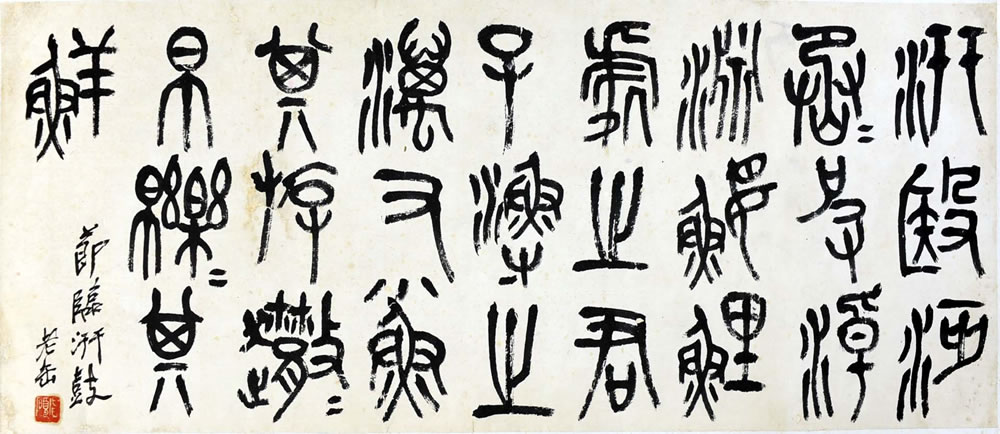 汧殹沔
烝〻皮淖
淵鰋鯉
處之君
子漁之
澫又小魚
其斿
帛皪〻其
鮮
節臨汧鼓
老缶